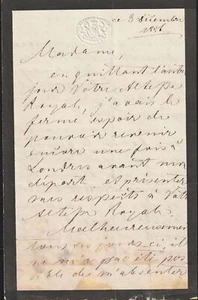 ce 3 Décembre
1886
Madame,
en quittant l'autre
jour Votre Altesse
Royale, j'avais le
ferme espoir de
pouvoir revenir
encore une fois à
Londres avant mon
départ et présenter
mes respects à Votre
Altesse Royale.
Malheureusement
tous ces jours-ci, il
ne m'a pas été pos
sible de m'absenter